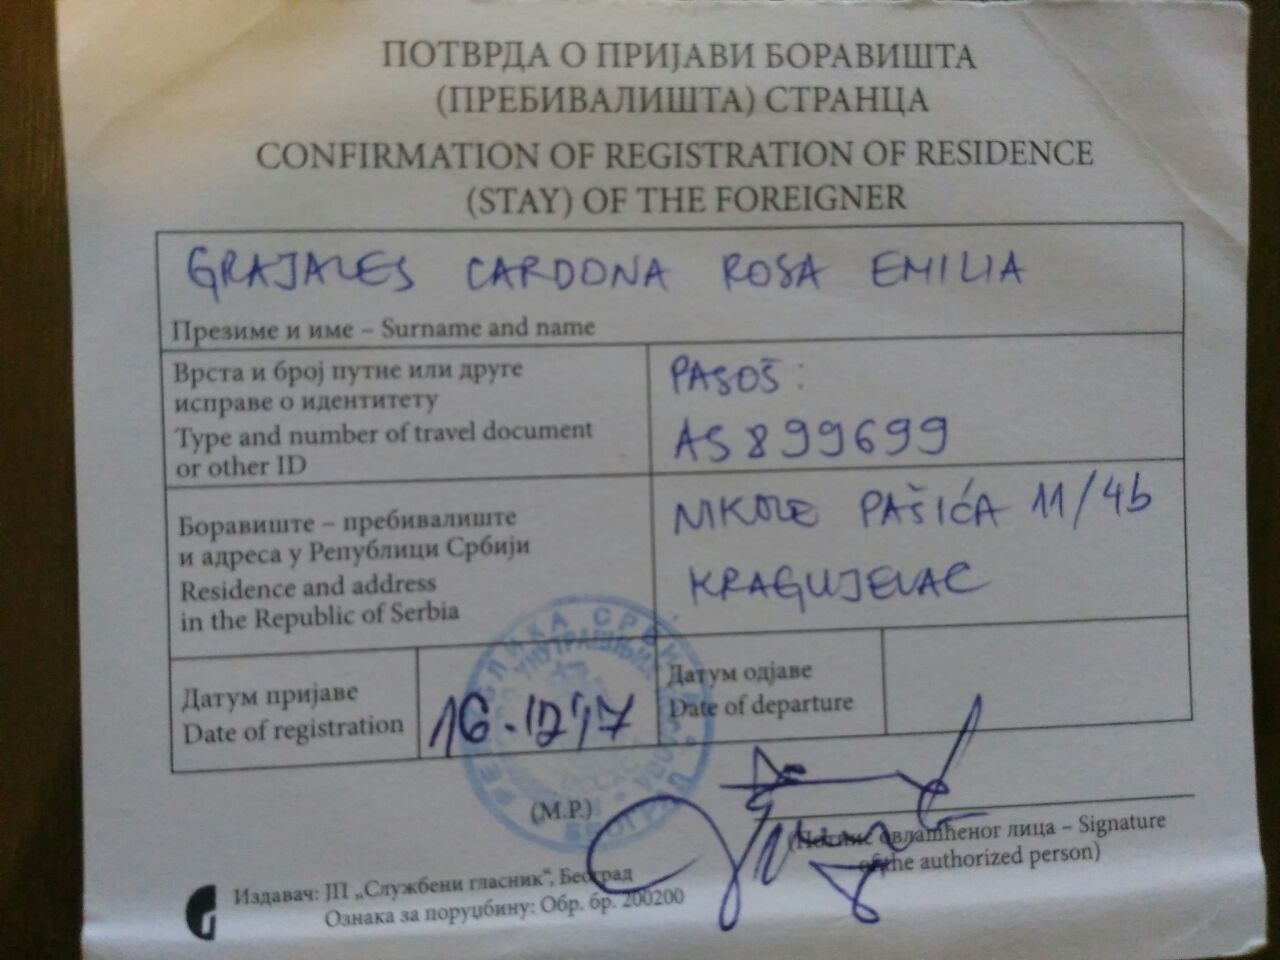 ПОТВРДА О ПРИЈАВИ БОРАВИШТА
(ПРЕБИВАЛИШТА) СТРАНЦА
CONFIRMATION OF REGISTRATION OF RESIDENCE
(STAY) OF THE FOREIGNER
GRAJALES CARDONA ROSA EMILIA
Презиме и име – Surname and name
Врста и број путне или друге
исправе о идентитету
Type and number of travel document
or other ID
PASOŠ:
AS899699
Боравиште – пребивалиште
и адреса у Републици Србији
Residence and address
in the Republic of Serbia
NIKOLE PAŠIĆA 11/4b
KRAGUJEVAC
Датум пријаве
Date of registration
16.12'17
Датум одјаве
Date of departure
(М.Р.)
(Потпис овлашћеног лица – Signature
of the authorized person)
Издавач: ЈП „Службени гласник“, Београд
Ознака за поруџбину: Обр. бр. 200200